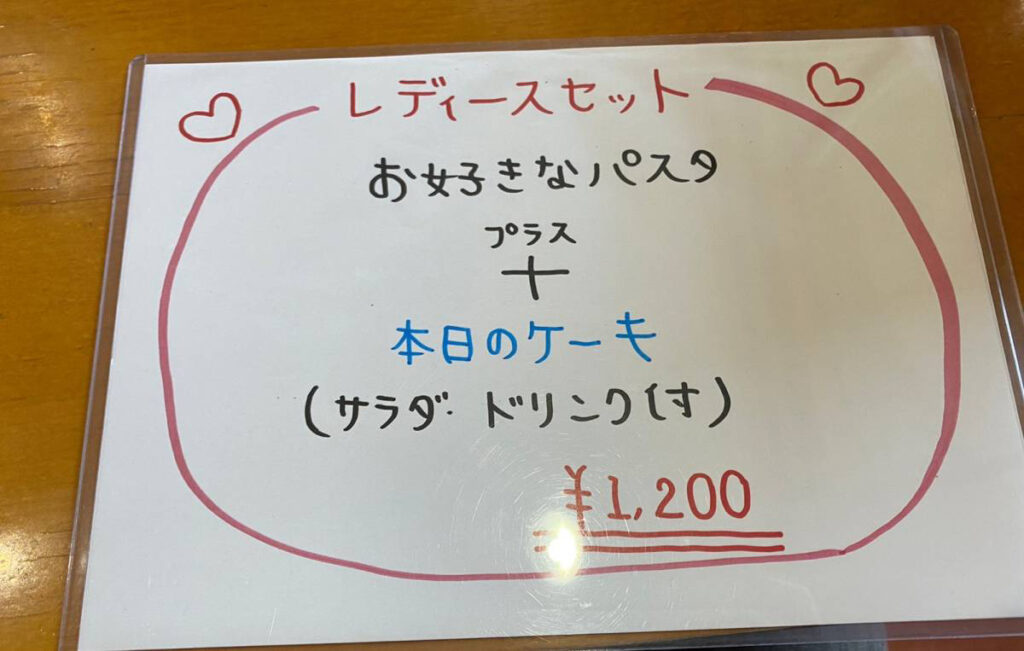 レディースセット
お好きなパスタ
プラス
+
本日のケーキ
(サラダ・ドリンク付)
¥1,200